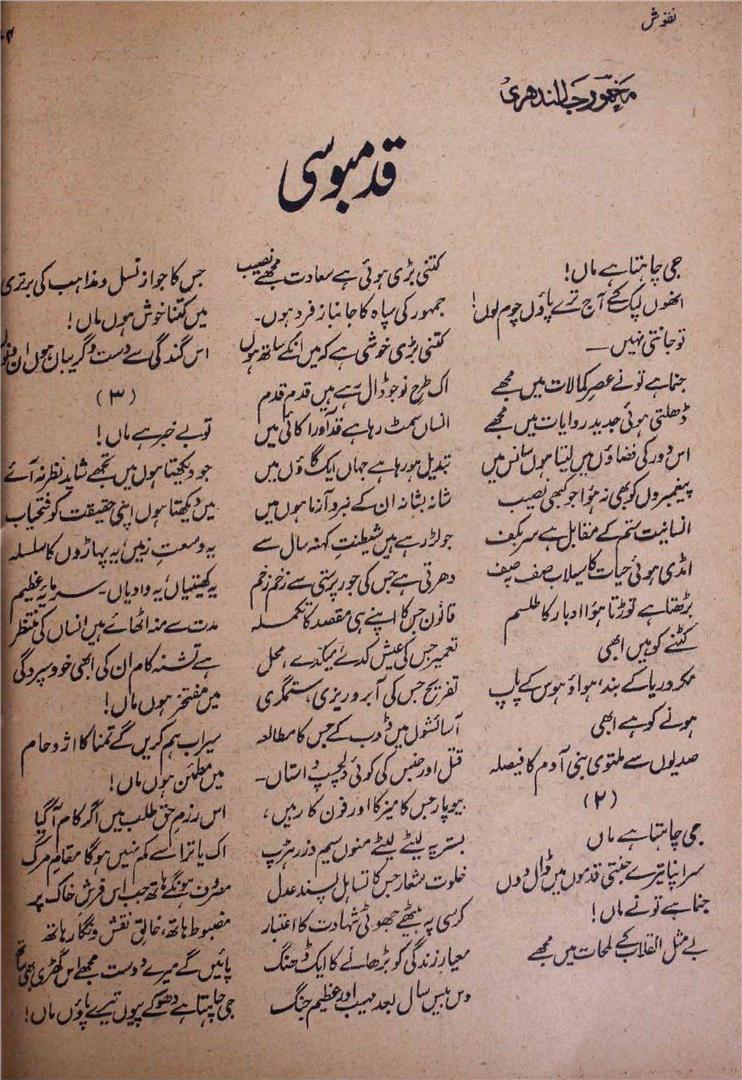 نقوش
مخمور جالندھری
قدمبوسی
جی چاہتا ہے ماں!
اٹھوں لپک کے آج ترے پاؤں چوم لوں!
تو جانتی نہیں —
جنما ہے تو نے عصرِ کمالات میں مجھے
ڈھلتی ہوئی جدید روایات میں مجھے
اس دور کی فضاؤں میں لیتا ہوں سانس میں
پیغمبروں کو بھی نہ ہؤا جو کبھی نصیب
انسانیت ستم کے مقابل ہے سر بکف
امڈی ہوئی حیات کا سیلاب صف بہ صف
بڑھتا ہے توڑتا ہؤا ادبار کا طلسم
کٹنے کو ہیں ابھی
مکر و ریا کے بند، ہوا و ہوس کے پاپ
ہونے کو ہے ابھی
صدیوں سے ملتوی بنی آدم کا فیصلہ
(۲)
جی چاہتا ہے ماں
سر اپنا تیرے جنتی قدموں میں ڈال دوں
جنما ہے تو نے ماں!
بے مثل انقلاب کے لمحات میں مجھے
کتنی بڑی ہوئی ہے سعادت مجھے نصیب
جمہور کی سپاہ کا جانباز فرد ہوں۔
کتنی بڑی خوشی ہے کہ میں انکے ساتھ ہوں
اک طرحِ نو جو ڈال رہے ہیں قدم قدم
انساں سمٹ رہا ہے قدآور اکائی میں
تبدیل ہو رہا ہے جہاں ایک گاؤں میں
شانہ بشانہ ان کے نبرد آزما ہوں میں
جو لڑ رہے ہیں شیطنتِ کہنہ سال سے
دھرتی ہے جس کی جور پرستی سے زخم زخم
قانون جس کا اپنے ہی مقصد کا تکملہ
تعمیر جس کی عیش کدے، میکدے، محل
تفریح جس کی آبروریزی، ستمگری
آسائشوں میں ڈوب کے جس کا مطالعہ
قتل اور جنس کی کوئی دلچسپ داستاں۔
بیوپار جس کا میز کا اور فون کا رہیں،
بستر پہ لیٹے لیٹے منوں سیم و زر ہڑپ
خلوت شعار جس کا تساہل پسند عدل
کرسی پہ بیٹھے جھوٹی شہادت کا اعتبار
معیارِ زندگی کو بڑھانے کا ایک ڈھنگ
دس بیس سال بعد مہیب اور عظیم جنگ
جس کا جواز نسل و مذاہب کی برتری
میں کتنا خوش ہوں ماں!
اس گندگی سے دست و گریباں ہوں ان دنوں
(۳)
تو بے خبر ہے ماں!
جو دیکھتا ہوں میں تجھے شاید نظر نہ آئے
میں دیکھتا ہوں اپنی حقیقت کو فتحیاب
یہ وسعتِ زمیں، یہ پہاڑوں کا سلسلہ
یہ کھیتیاں، یہ وادیاں۔ سرمایۂ عظیم
مدت سے منہ اٹھائے ہیں انساں کی منتظر
ہے تشنہ کام ان کی ابھی خود سپردگی
میں مفتخر ہوں ماں!
سیراب ہم کریں گے تمنا کا اژدحام
میں مطمئن ہوں ماں!
اس رزمِ حق طلب میں اگر کام آ گیا
اک یاترا سے کم نہیں ہوگا مقامِ مرگ
مصروف ہونگے ہاتھ جب اس فرشِ خاک پر
مضبوط ہاتھ، خالقِ نقش و نگار ہاتھ
پائیں گے میرے دوست مجھے اس گھڑی بھی ساتھ
جی چاہتا ہے دھو کے پیوں تیرے پاؤں ماں!